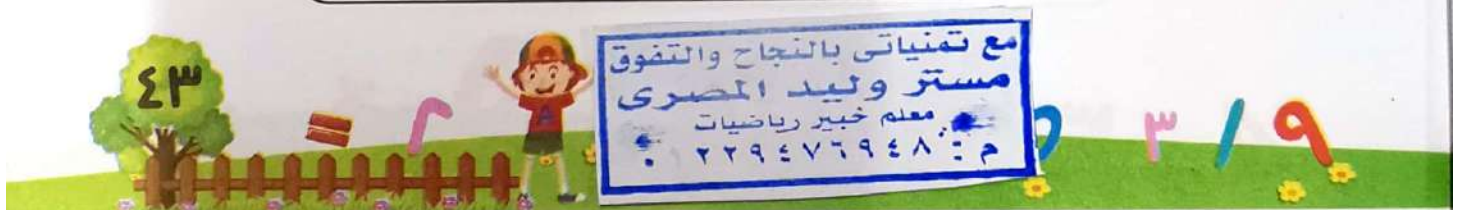 ٤٣
مع تمنياتى بالنجاح والتفوق
مستر وليد المصرى
معلم خبير رياضيات
م :
= ٢
٣ / ٩